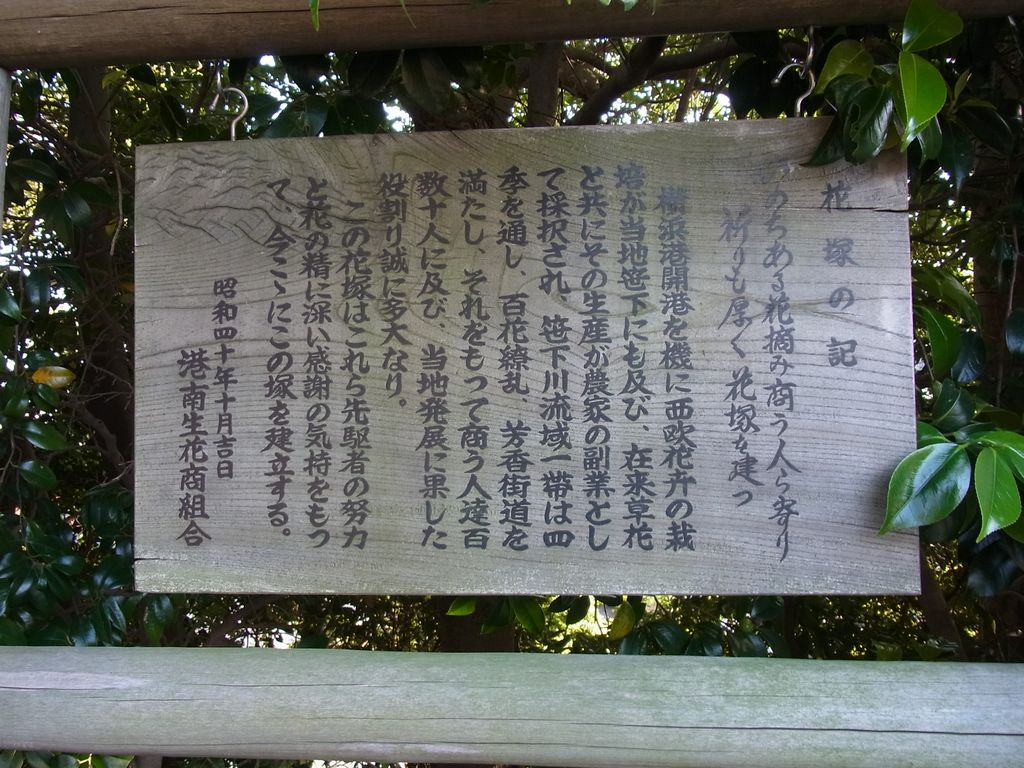 花塚の記
いのちある花摘み商う人ら寄り
祈りも厚く花塚を建つ
横浜港開港を機に西欧花卉の栽
培が当地笹下にも及び、在来草花
と共にその生産が農家の副業とし
て採択され、笹下川流域一帯は四
季を通し、百花繚乱、芳香街道を
満たし、それをもって商う人達百
数十人に及び、当地発展に果した
役割り誠に多大なり。
この花塚はこれら先駆者の努力
と花の精に深い感謝の気持をもっ
て、今こゝにこの塚を建立する。
昭和四十年十月吉日
港南生花商組合